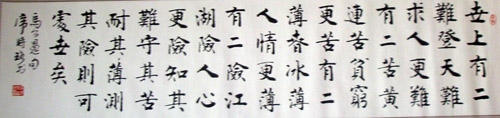 世上有二
難登天難
求人更難
有二苦黄
連苦貧窮
更苦有二
薄春冰薄
人情更薄
有二險江
湖險人心
更險知其
難守其苦
耐其薄測
其險則可
處世矣